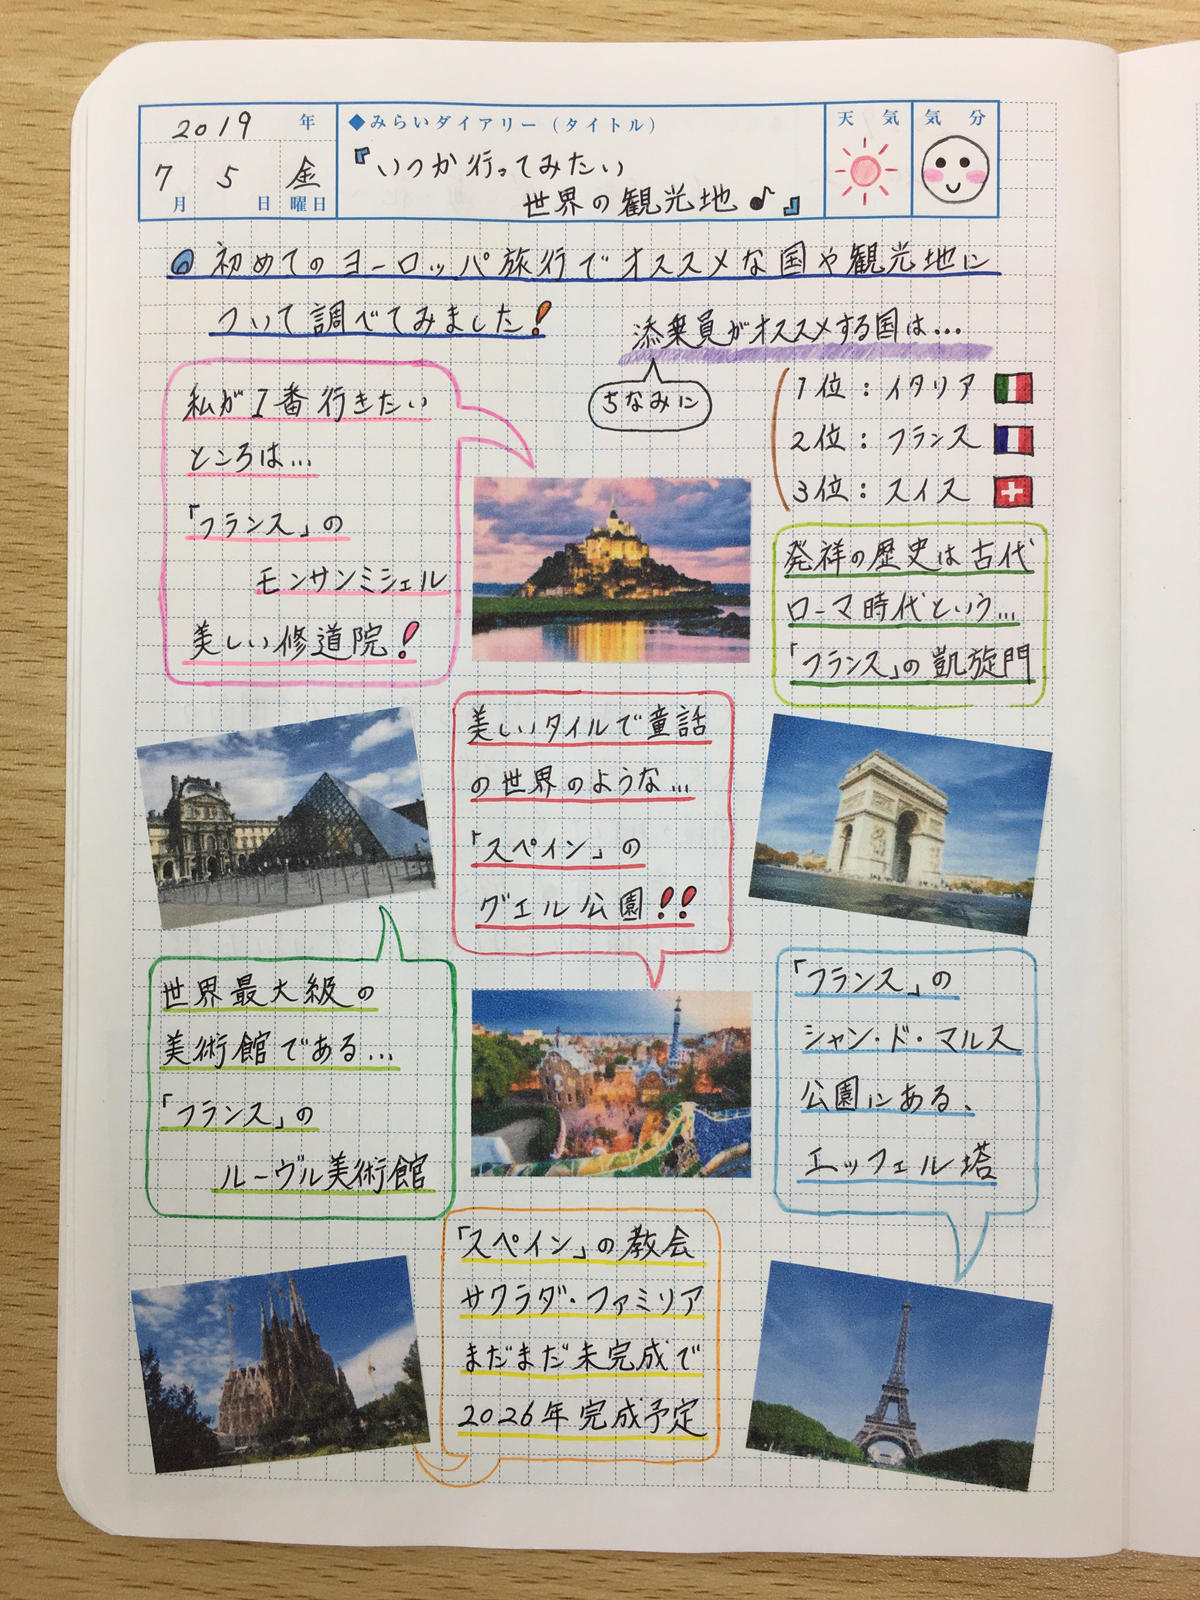 2019 年
7月 5日 金曜日
◆みらいダイアリー(タイトル)
『いつか行ってみたい
世界の観光地♪』
天気
気分
初めてのヨーロッパ旅行でオススメな国や観光地に
ついて調べてみました!
添乗員がオススメする国は…
ちなみに
1位:イタリア
2位:フランス
3位:スイス
私が1番行きたい
ところは…
「フランス」の
モンサンミシェル
美しい修道院!
発祥の歴史は古代
ローマ時代という…
「フランス」の凱旋門
美しいタイルで童話
の世界のような…
「スペイン」の
グエル公園!!
世界最大級の
美術館である…
「フランス」の
ルーヴル美術館
「フランス」の
シャン・ド・マルス
公園にある、
エッフェル塔
「スペイン」の教会
サクラダ・ファミリア
まだまだ未完成で
2026年完成予定